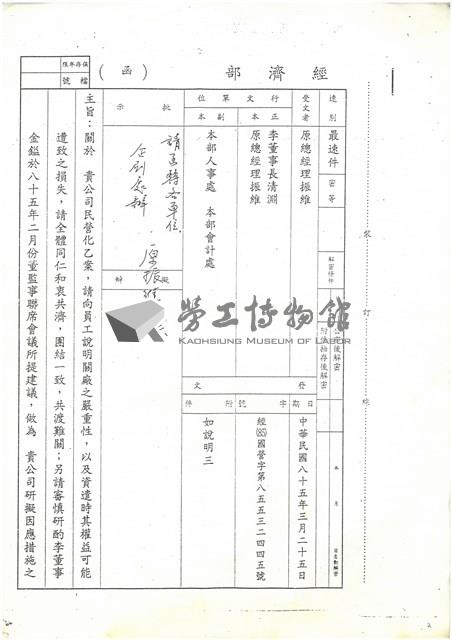 經濟部（函）
保存年限
檔號
速別
最速件
密等
解密條件
公布後解密
附件抽存後解密
年月日自動解密
受文者
原總經理振維
行文單位
正本
李董事長清淵
原總經理振維
副本
本部人事處　本部會計處
發文
日期
中華民國八十五年三月二十五日
字號
經(85)國營字第八五五三二四四五號
附件
如說明三
批示
擬辦
請函轉各單位
企劃處辦
原振維
主旨：關於　貴公司民營化乙案，請向員工說明關廠之嚴重性，以及資遣時其權益可能
遭致之損失，請全體同仁和衷共濟，團結一致，共渡難關；另請審慎研酌李董事
金鎰於八十五年二月份董監事聯席會議所提建議，做為　貴公司研擬因應措施之
裝
訂
線
勞工博物館
KAOHSIUNG MUSEUM OF LABOR
2